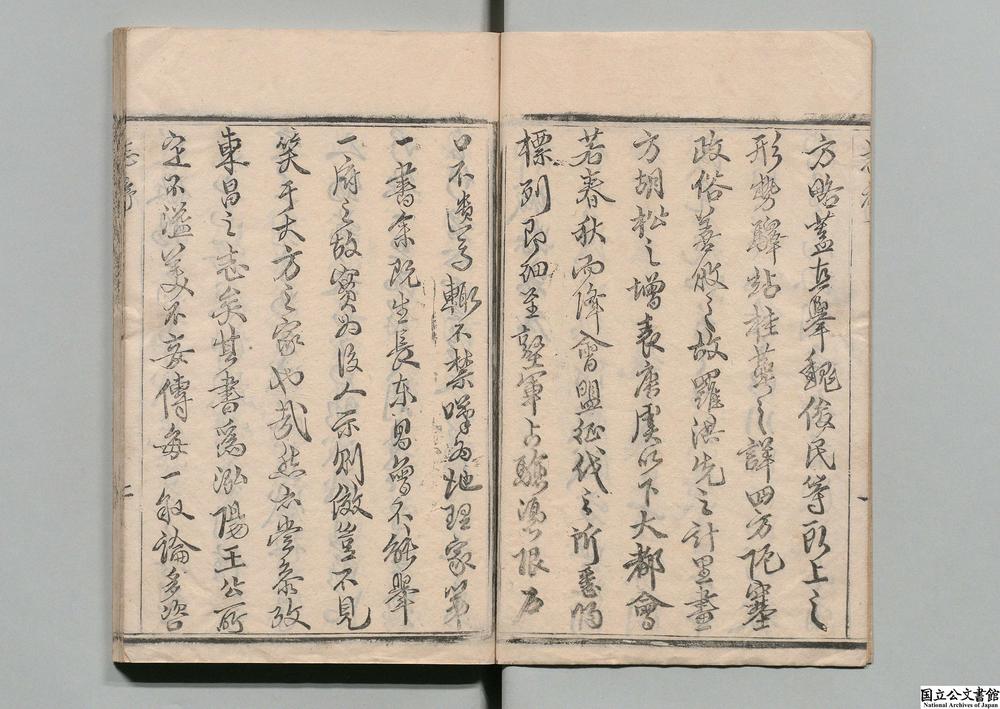 方略蓋直舉魏俊民等所上之
形勢驛站柱藁之詳四方阨塞
政俗美敗之故羅洪先之計里畫
方胡松之增表唐虞以下大都會
若春秋而降會盟征伐之所悉
標列即細至墾軍占驗濕限石
口不遺焉輒不禁嘆為地理家第
一書余既生長東昌曾不能舉
一府之故實為後人示則傚豈不見
笑于大方之家也哉然亦嘗參攷
東昌之志矣其書為泓陽王公所
定不溢美不妄傳每一敘論多咨
國立公文書館
National Archives of Japan